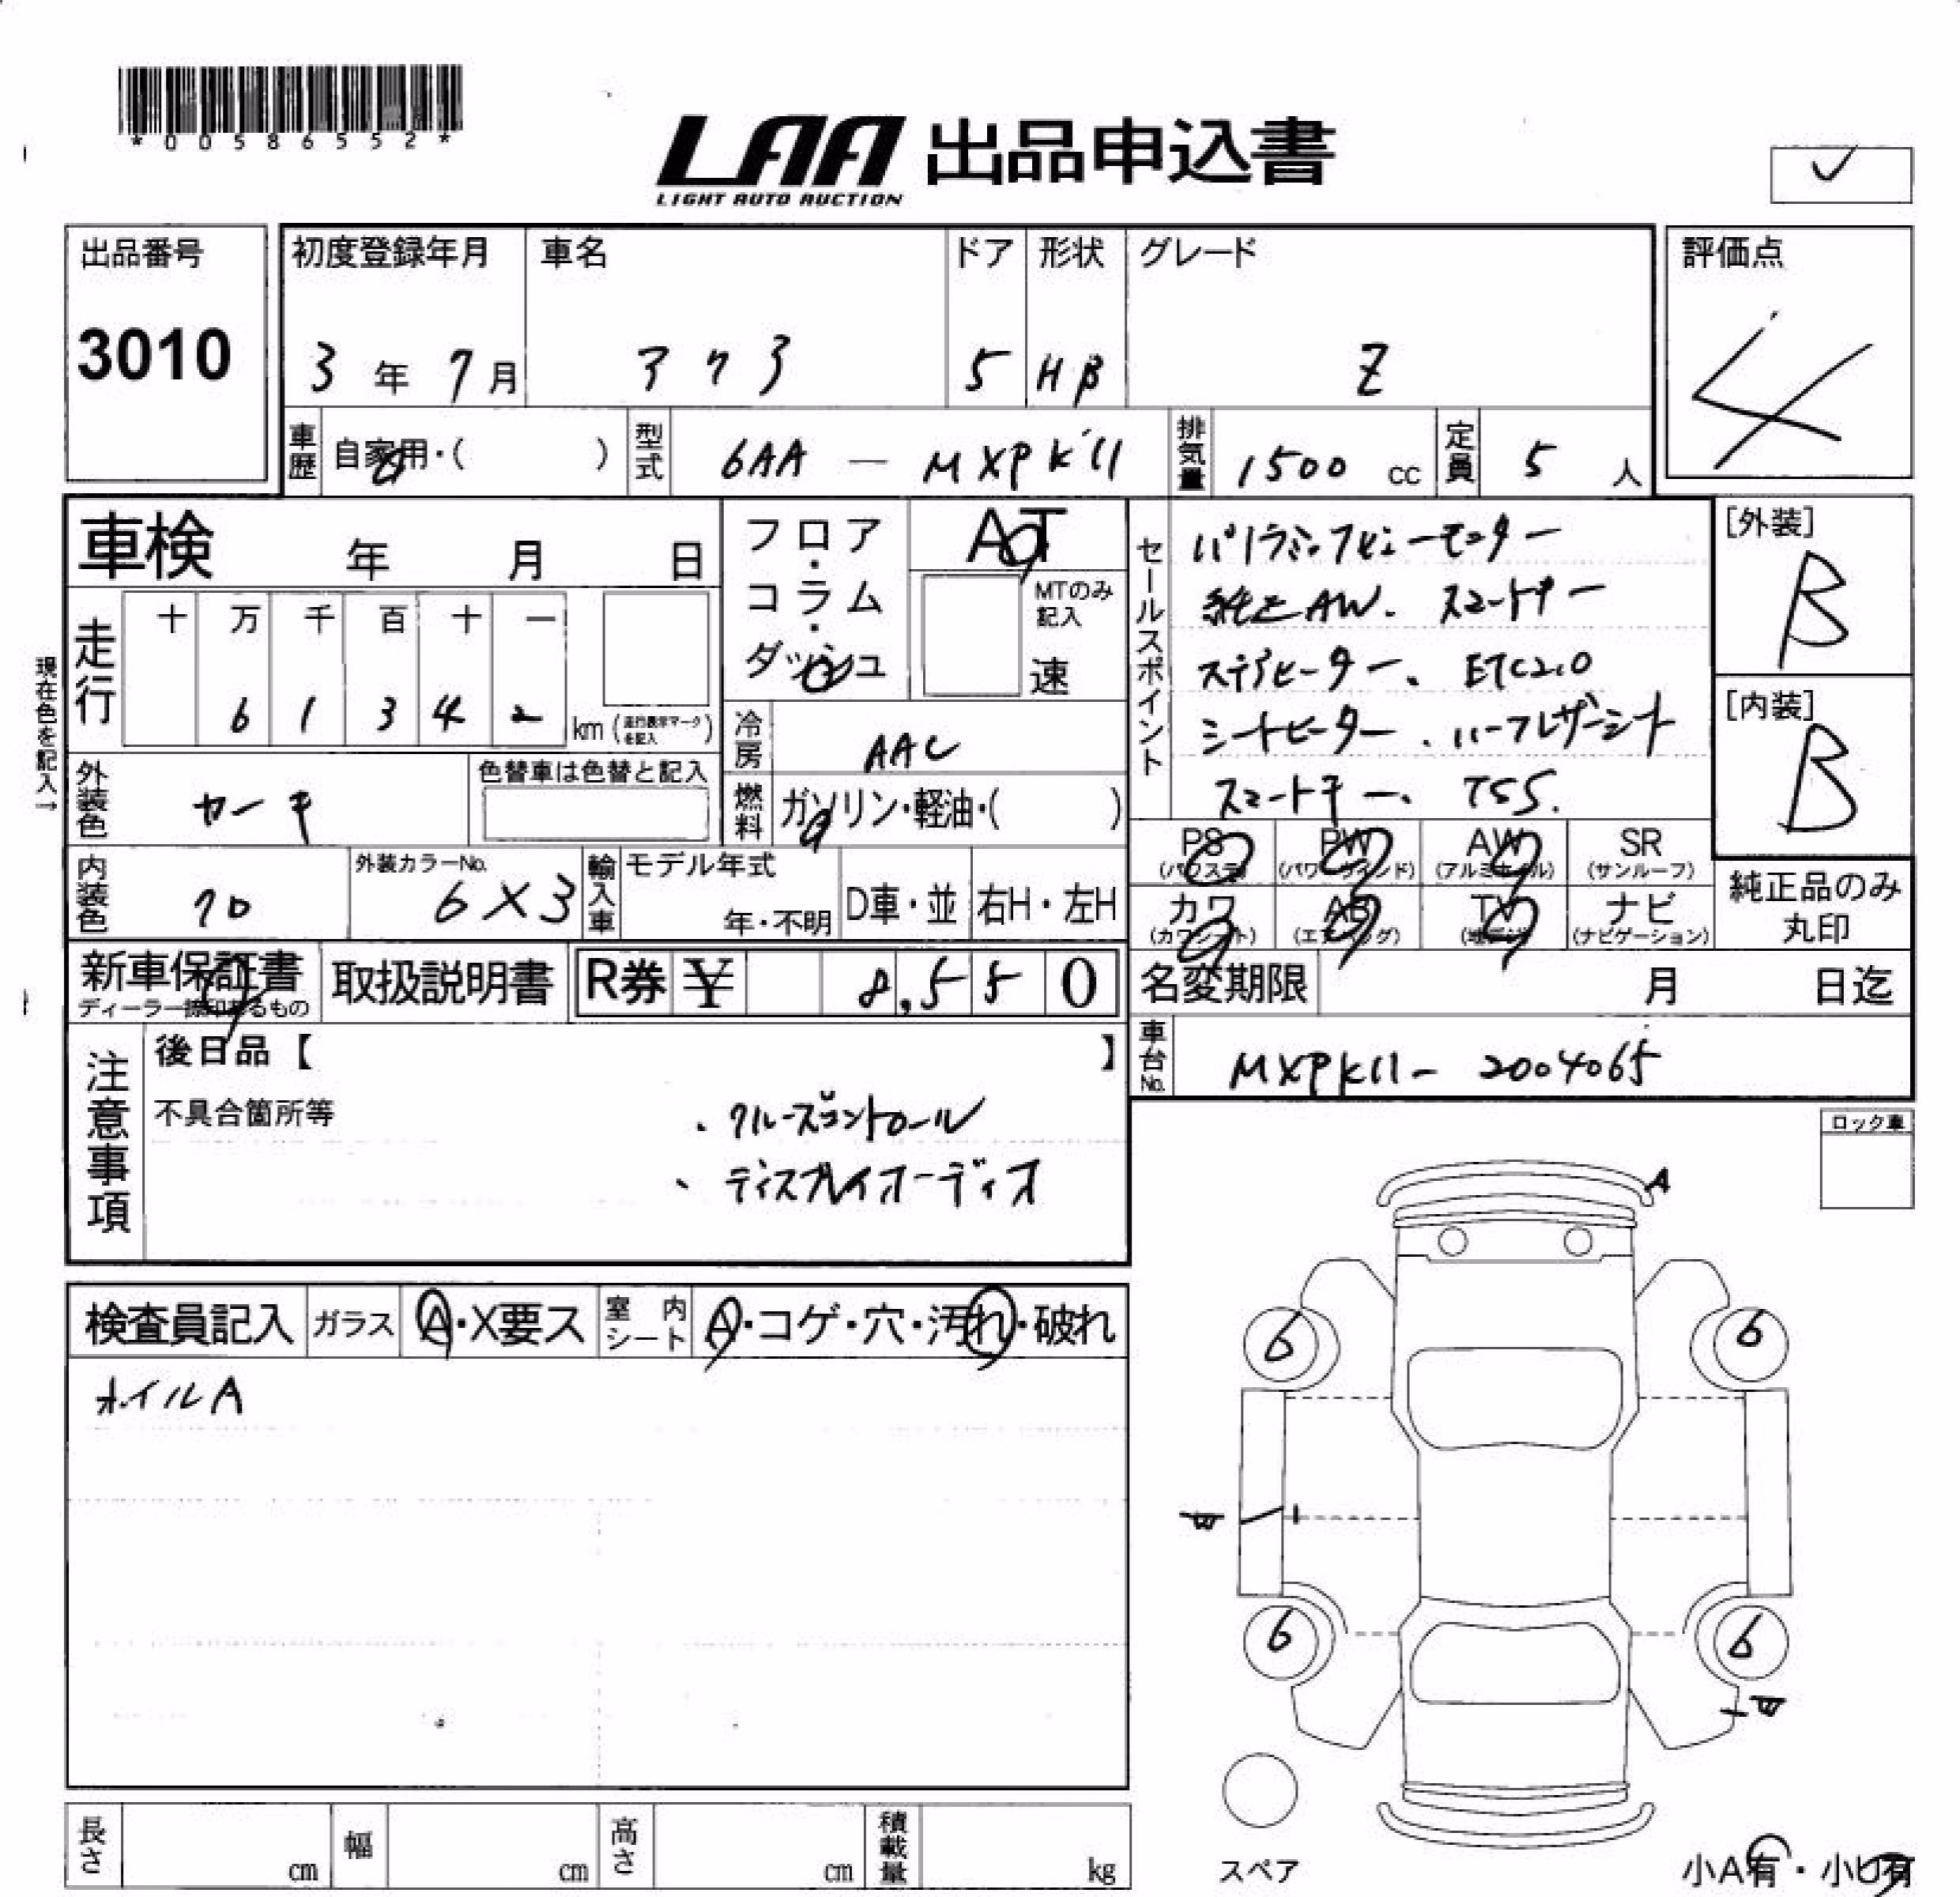 *00586552*
LAA 出品申込書
LIGHT AUTO AUCTION
出品番号
3010
初度登録年月
3年 7月
車名
アクア
ドア
5
形状
HB
グレード
Z
評価点
4
車歴 自家用・( )
型式 6AA — MXPK11
排気量 1500 cc
定員 5 人
車検 年 月 日
フロア・コラム・ダッシュ
AT
MTのみ記入
速
セールスポイント
パノラミックビューモニター
純正AW. スマートキー
ステアヒーター、ETC2.0
シートヒーター、ハーフレザーシート
スマートキー、TSS.
[外装]
B
[内装]
B
現在色を記入→
走行
十 万 千 百 十 一
6 1 3 4 2 km (走行表示マークを記入)
冷房 AAC
外装色 カーキ
色替車は色替と記入
燃料 ガソリン・軽油・( )
内装色
外装カラーNo.
6X3
輸入車
モデル年式
年・不明
D車・並
右H・左H
PS (パワステ)
PW (パワーウインド)
AW (アルミホイル)
SR (サンルーフ)
カワ (カワシート)
AB (エアバッグ)
TV (地デジ)
ナビ (ナビゲーション)
純正品のみ丸印
新車保証書
ディーラー捺印あるもの
取扱説明書
R券 ¥ 8,550
名変期限 月 日迄
車台No. MXPK11- 2004065
注意事項
後日品【 】
不具合箇所等
・クルーズコントロール
、ディスプレイオーディオ
ロック車
A
検査員記入
ガラス A・X要ス
室内シート A・コゲ・穴・汚れ・破れ
ホイルA
6
6
6
6
スペア
長さ cm
幅 cm
高さ cm
積載量 kg
小A有・小U有